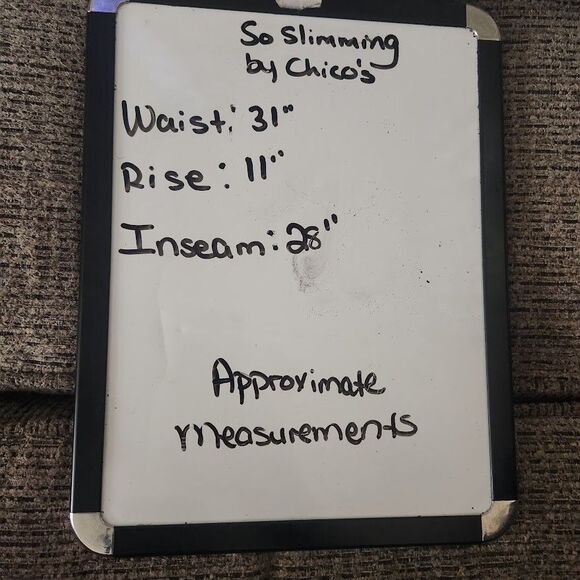 So Slimming
by Chico's
Waist: 31"
Rise: 11"
Inseam: 28"
Approximate
measurements